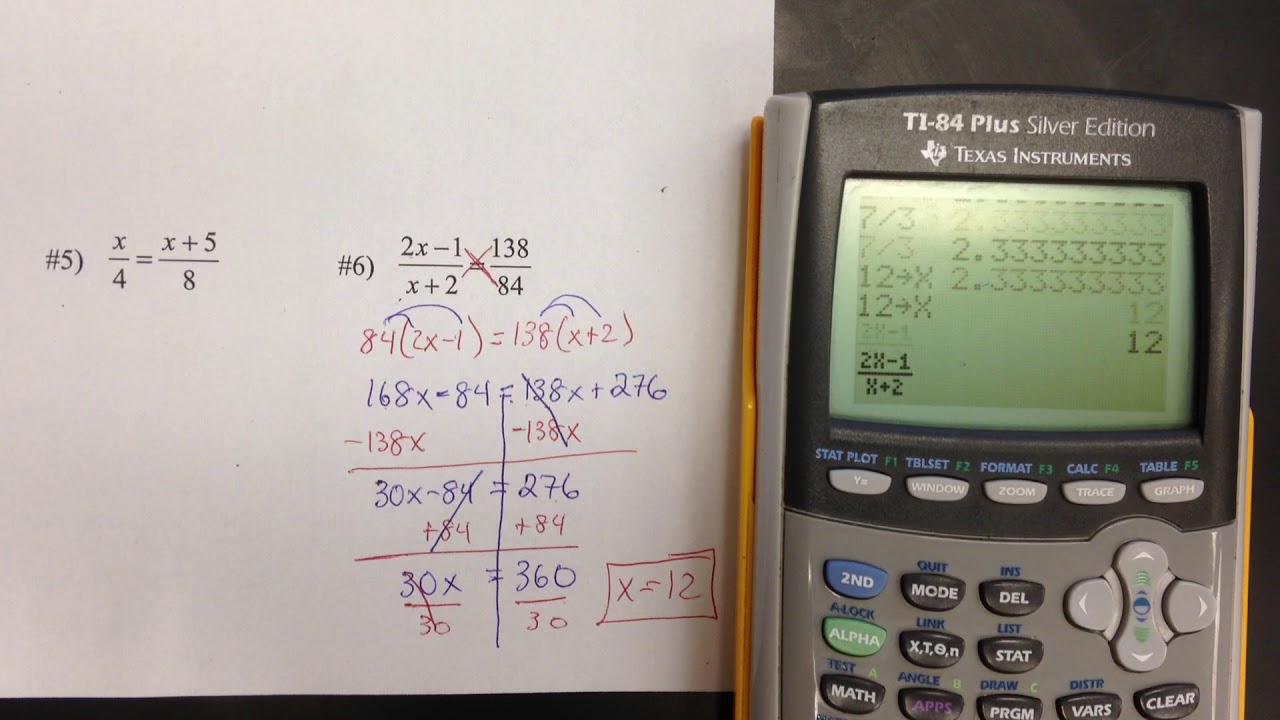 #5) x/4 = x+5/8
#6) 2x-1/x+2 = 138/84
84(2x-1) = 138(x+2)
168x-84 = 138x+276
-138x -138x
30x-84 = 276
+84 +84
30x = 360
30 30
x=12
TI-84 Plus Silver Edition
TEXAS INSTRUMENTS
7/3 2.333333333
7/3 2.333333333
12→X 2.333333333
12→X 12
2X-1 12
2X-1
X+2
STAT PLOT F1 TBLSET F2 FORMAT F3 CALC F4 TABLE F5
Y= WINDOW ZOOM TRACE GRAPH
QUIT INS
2ND MODE DEL
A-LOCK LINK LIST
ALPHA X,T,Θ,n STAT
TEST A ANGLE B DRAW C DISTR
MATH APPS PRGM VARS CLEAR